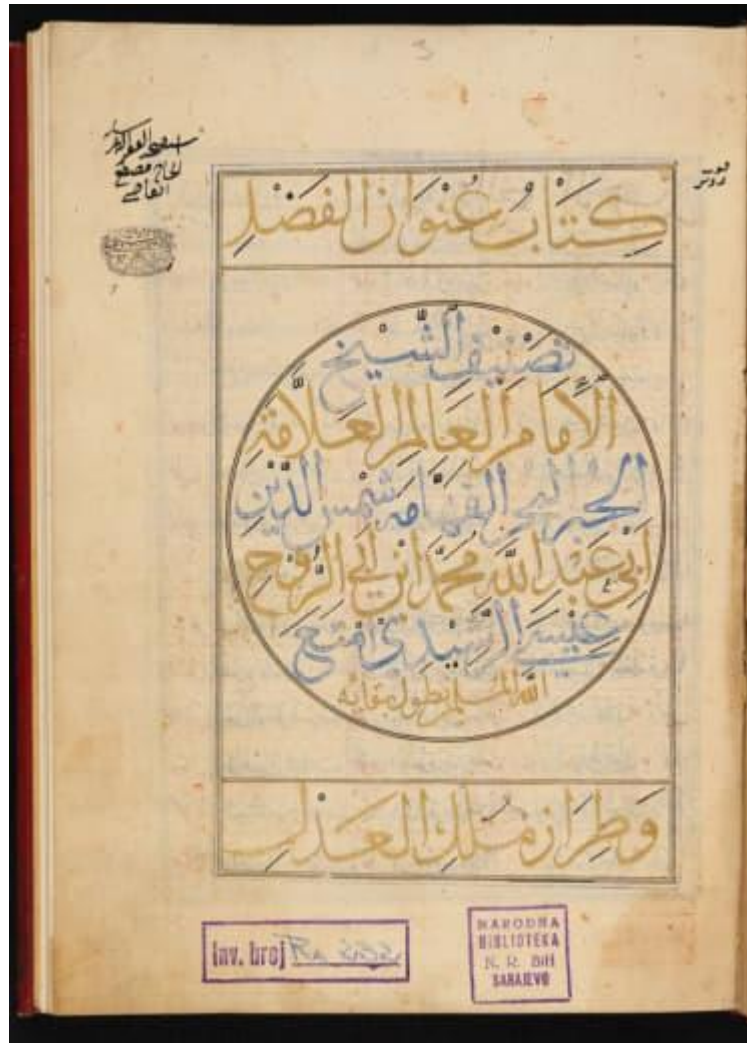 3
كِتَابُ عُنْوَانِ الفَضْلِ
تَصْنِيفُ الشَّيْخِ
الأَمَامِ العَالِمِ العَلاَّمَةِ
الحبر البحر الفهامه شَمْسِ الدِّيْنِ
اَبِي عَبْدِ اللهِ مُحَمَّد ابْنِ اَبِي الرُّوْحِ
عِيْسَى
الله المسلمين بطول بقايه
وَطِرَازِ مُلْكِ العَدْلِ
inv. broj
NARODNA
BIBLIOTEKA
N. R. BiH
SARAJEVO